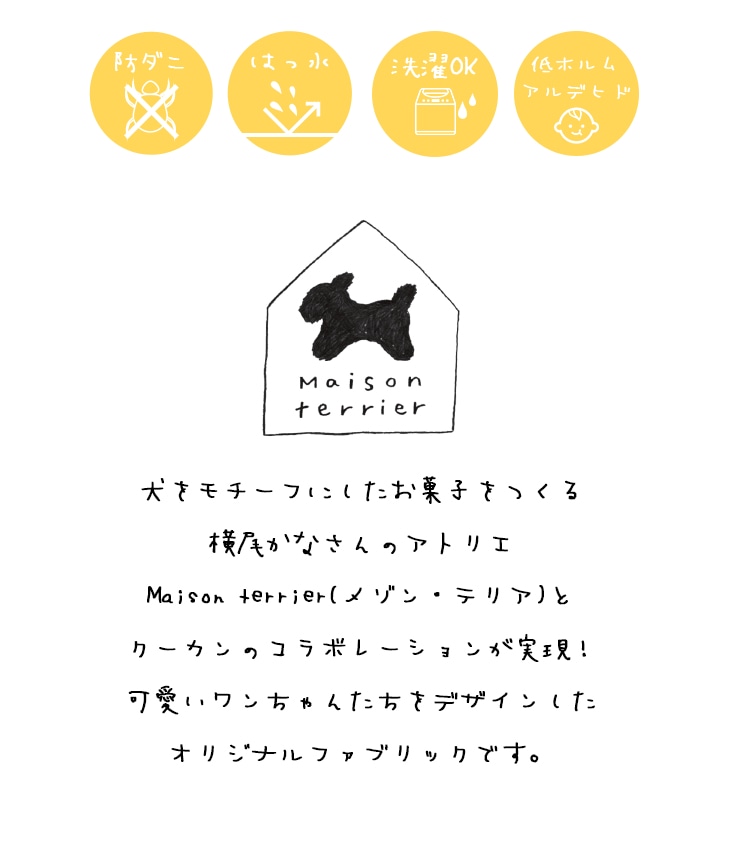 防ダニ
はっ水
洗濯OK
低ホルム
アルデヒド
Maison
terrier
犬をモチーフにしたお菓子をつくる
横尾かなさんのアトリエ
Maison terrier(メゾン・テリア)と
クーカンのコラボレーションが実現!
可愛いワンちゃんた方をデザインした
オリジナルファブリックです。